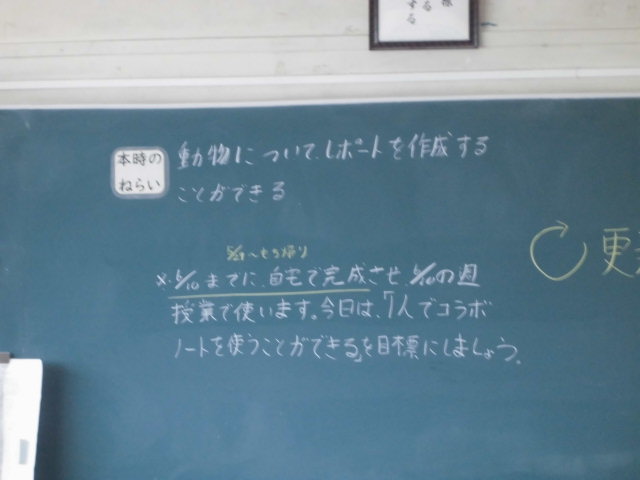 る
する
本時の
ねらい
動物について、レポートを作成する
ことができる
もち帰り
※ 6/10までに、自宅で完成させ、6/10の週
授業で使います。今日は、「1人でコラボ
ノートを使うことができる」を目標にしましょう。
更新